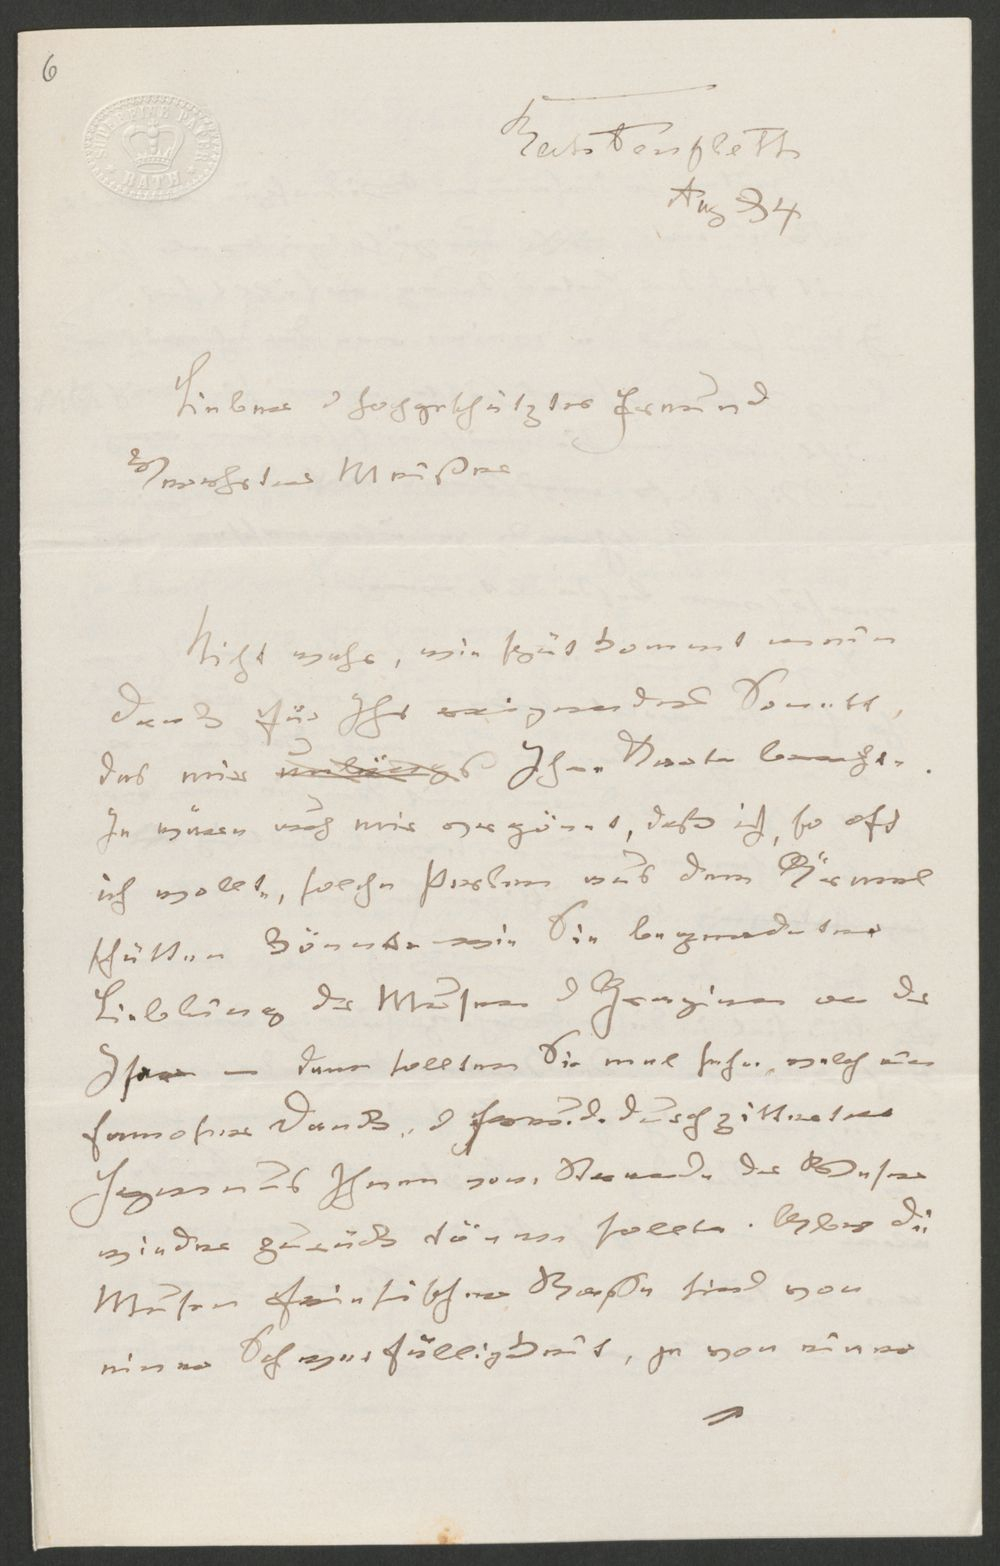 6
SUPERFINE PAPER
BATH
Rechtenfleth
Aug 84
Lieber & hochgeschätzter Freund
Verehrter Meister
Nicht wahr, wie spät kommt mein
Dank für Ihr reizendes Sonett,
das mir Ihre Karte brachte.
Ja wäre auch mir vergönnt, daß ich, so oft
ich wollte, solche Perlen aus dem Ärmel
schütten könnte wie Sie begnadeter
Liebling der Musen & Grazien an der
Isar — dann sollten Sie mal sehen, welch ein
famoser Dank, & durchzitterter
Hymnus Ihnen vom Strande der Weser
wieder zurück tönen sollte. Aber die
Musen friesischer Rasse sind von
einer Schwerfälligkeit, ja von einer